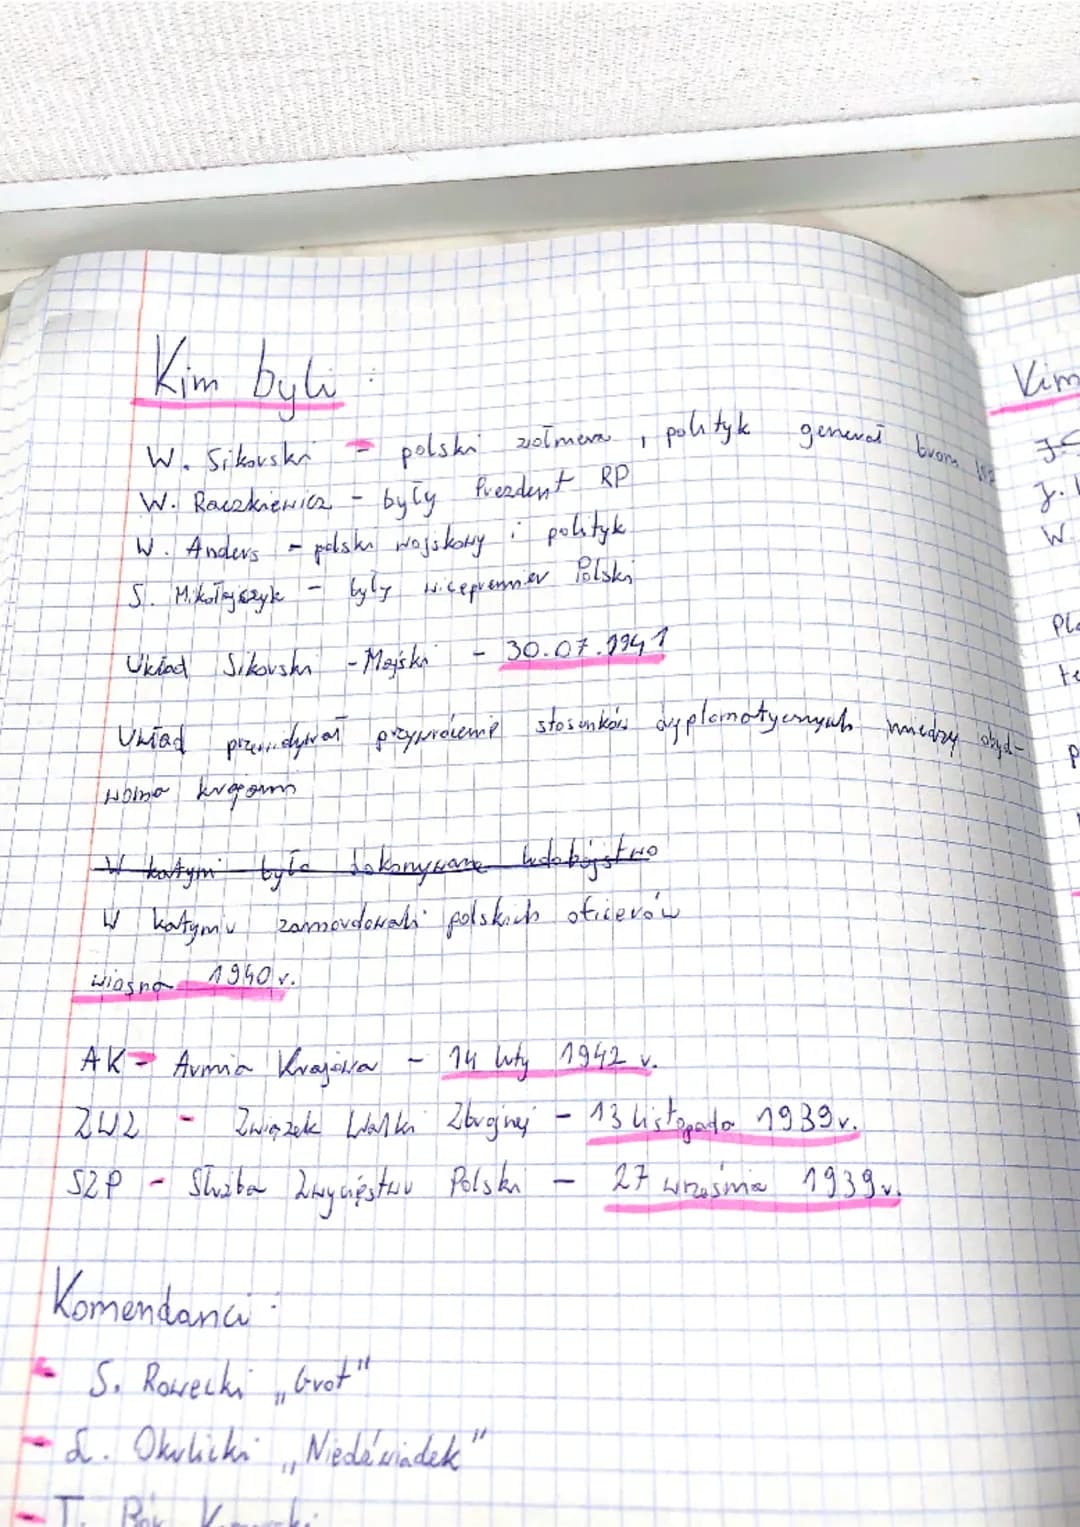 Kim byli :
W. Sikorski - polski żołnierz, polityk generał broni
W. Raczkiewicz - były Prezdent RP
W. Anders - polski wojskowy i polityk
S. Mikołajczyk - były wicepremier Polski
Układ Sikorski - Majski - 30.07.1941
Układ przewidywał przywrócenie stosunków dyplomatycznych między obyd-
woma krajami
W katyni było dokonywane ludobójstwo
W katyniu zamordowali polskich oficerów
wiosna 1940 r.
AK - Armia Krajowa - 14 luty 1942 r.
ZWZ - Związek Walki Zbrojnej - 13 listopada 1939 r.
SZP - Służba Zwycięstwu Polski - 27 września 1939 r.
Komendanci :
- S. Rowecki „Grot"
- L. Okulicki „Niedźwiadek"
- T. Bór
Kim
W.